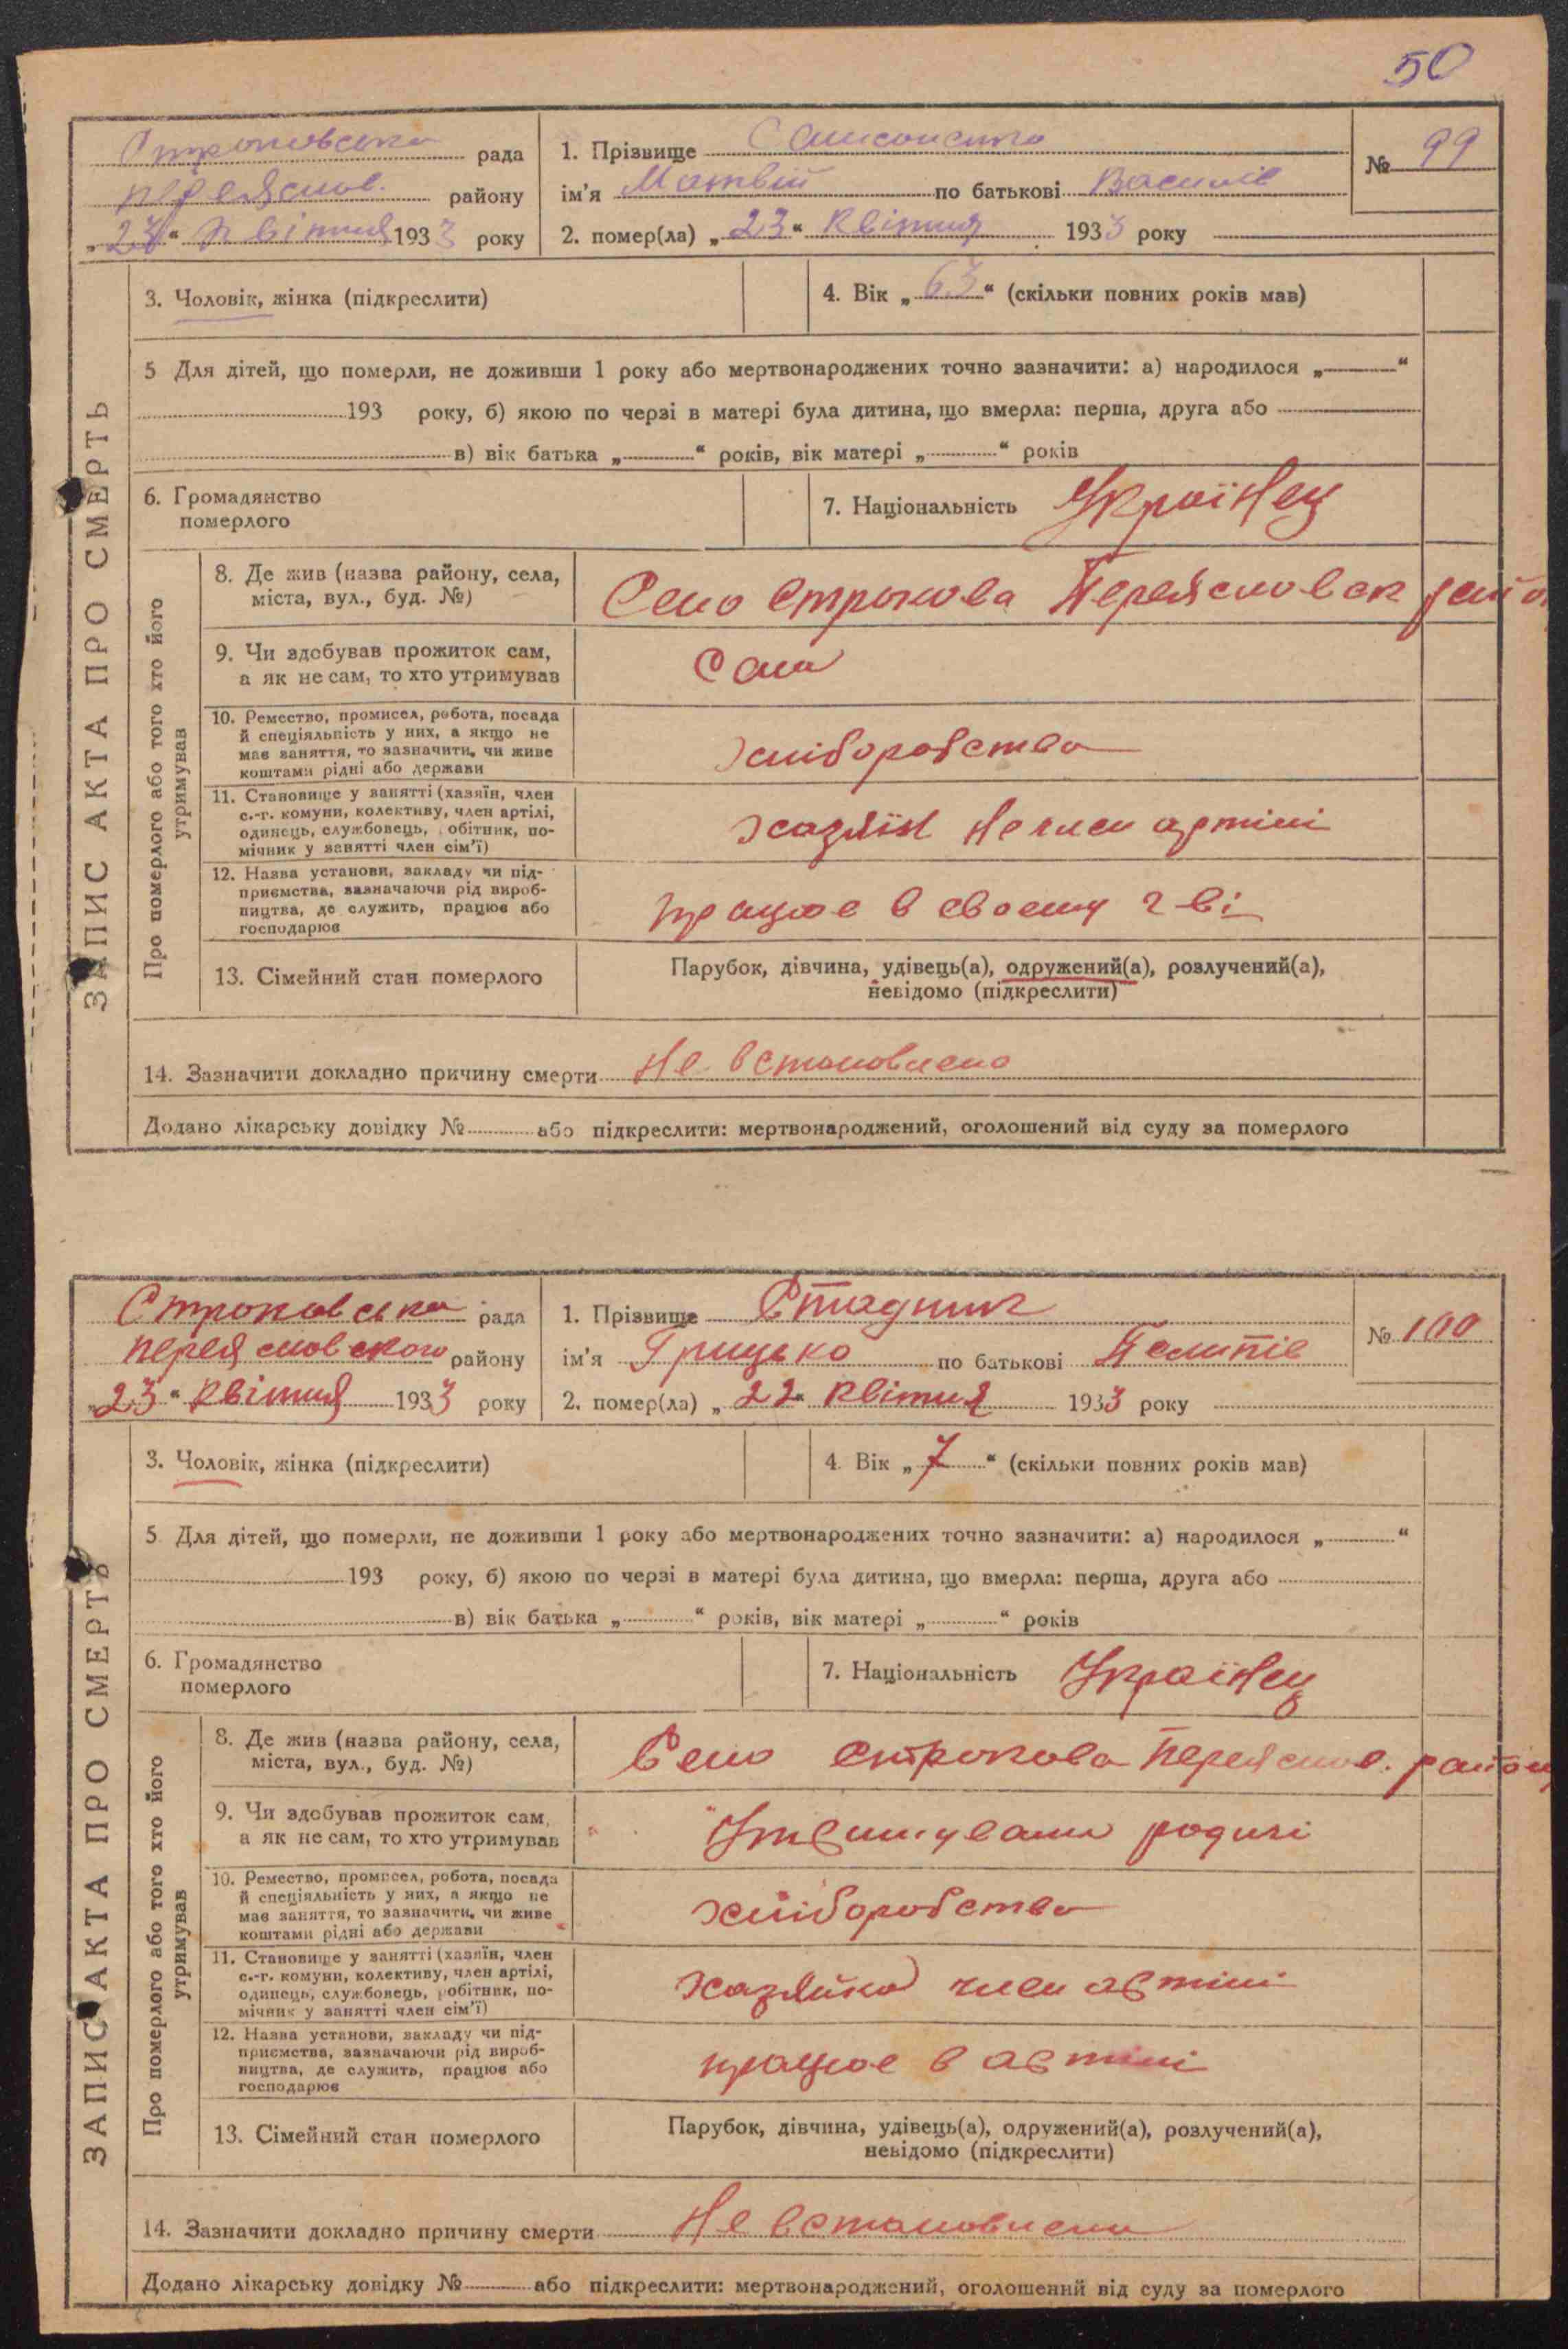 50
Строковська рада
переяслов. району
„23“ квітня 1933 року
1. Прізвище
ім'я Матвій по батькові Василів
2. помер(ла) „23“ квітня 1933 року
№ 99
3. Чоловік, жінка (підкреслити)
4. Вік „63“ (скільки повних років мав)
5 Для дітей, що померли, не доживши 1 року або мертвонароджених точно зазначити: а) народилося „ “
193 року, б) якою по черзі в матері була дитина, що вмерла: перша, друга або
в) вік батька „ “ років, вік матері „ “ років
6. Громадянство
померлого
7. Національність Українец
ЗАПИС АКТА ПРО СМЕРТЬ
Про померлого або того хто його
утримував
8. Де жив (назва району, села,
міста, вул., буд. №)
Село Строкова Переясловск район
9. Чи здобував прожиток сам,
а як не сам, то хто утримував
Сам
10. Ремество, промисел, робота, посада
й спеціяльність у них, а якщо не
має заняття, то зазначити, чи живе
коштами рідні або держави
хліборобство
11. Становище у занятті (хазяїн, член
с.-г. комуни, колективу, член артілі,
одинець, службовець, обітник, по-
мічник у занятті член сім'ї)
хазяїн не член артілі
12. Назва установи, закладу чи під-
приємства, зазначаючи рід вироб-
ництва, де служить, працює або
господарює
працює в своему г-ві
13. Сімейний стан померлого
Парубок, дівчина, удівець(а), одружений(а), розлучений(а),
невідомо (підкреслити)
14. Зазначити докладно причину смерти Не встановлено
Додано лікарську довідку № або підкреслити: мертвонароджений, оголошений від суду за померлого
Строковська рада
переясловского району
„23“ квітня 1933 року
1. Прізвище Стадник
ім'я Грицько по батькові
2. помер(ла) „22“ квітня 1933 року
№ 100
3. Чоловік, жінка (підкреслити)
4. Вік „7“ (скільки повних років мав)
5 Для дітей, що померли, не доживши 1 року або мертвонароджених точно зазначити: а) народилося „ “
193 року, б) якою по черзі в матері була дитина, що вмерла: перша, друга або
в) вік батька „ “ років, вік матері „ “ років
6. Громадянство
померлого
7. Національність Українец
ЗАПИС АКТА ПРО СМЕРТЬ
Про померлого або того хто його
утримував
8. Де жив (назва району, села,
міста, вул., буд. №)
Село Строкова Переяслов. району
9. Чи здобував прожиток сам,
а як не сам, то хто утримував
родичі
10. Ремество, промисел, робота, посада
й спеціяльність у них, а якщо не
має заняття, то зазначити, чи живе
коштами рідні або держави
хліборобство
11. Становище у занятті (хазяїн, член
с.-г. комуни, колективу, член артілі,
одинець, службовець, робітник, по-
мічник у занятті член сім'ї)
хазяйка член артілі
12. Назва установи, закладу чи під-
приємства, зазначаючи рід вироб-
ництва, де служить, працює або
господарює
працює в артілі
13. Сімейний стан померлого
Парубок, дівчина, удівець(а), одружений(а), розлучений(а),
невідомо (підкреслити)
14. Зазначити докладно причину смерти Не встановлено
Додано лікарську довідку № або підкреслити: мертвонароджений, оголошений від суду за померлого